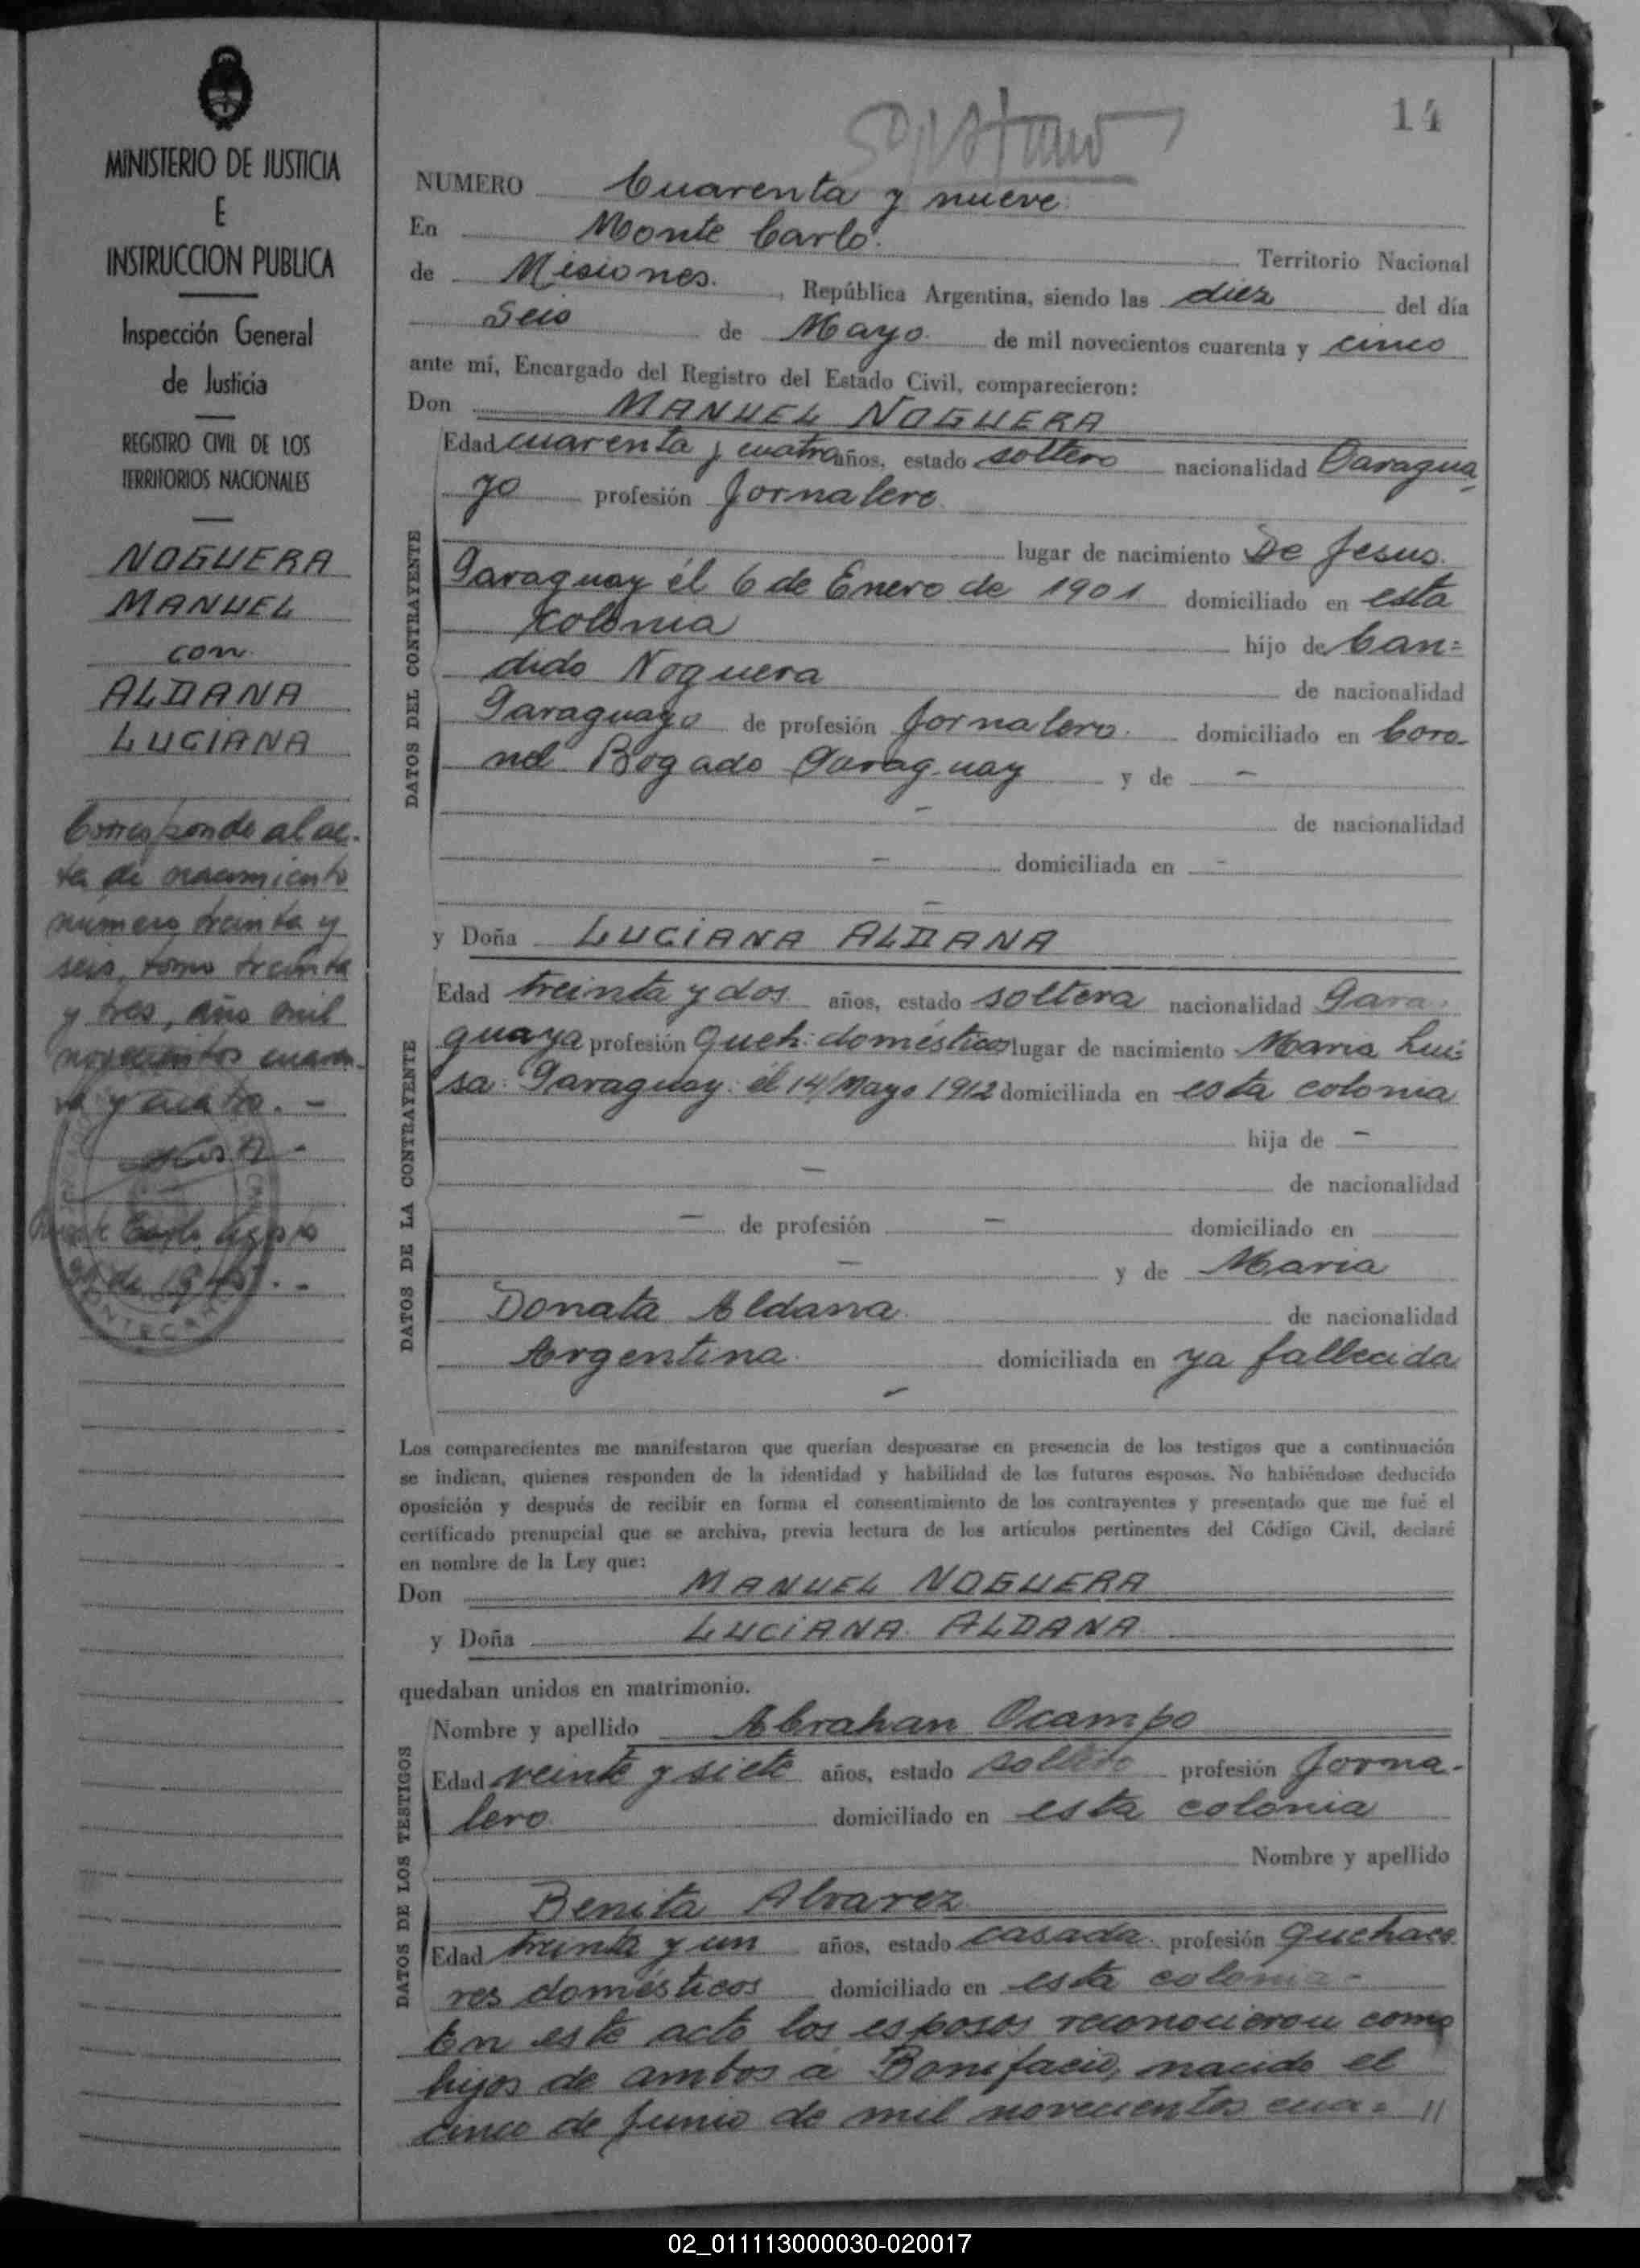 MINISTERIO DE JUSTICIA
E
INSTRUCCION PUBLICA
Inspección General
de Justicia
REGISTRO CIVIL DE LOS
TERRITORIOS NACIONALES
NOGUERA
MANUEL
con
ALDANA
LUCIANA
Corresponde al ac-
ta de nacimiento
número treinta y
seis, tomo treinta
y tres, año mil
novecientos cuaren-
ta y cuatro. -
14
NUMERO Cuarenta y nueve
En Monte Carlo. Territorio Nacional
de Misiones. , República Argentina, siendo las diez del día
Seis de Mayo. de mil novecientos cuarenta y cinco
ante mí, Encargado del Registro del Estado Civil, comparecieron:
Don MANUEL NOGUERA
DATOS DEL CONTRAYENTE
Edad cuarenta y cuatro años, estado soltero nacionalidad Paragua
yo profesión Jornalero.
lugar de nacimiento De Jesus.
Paraguay él 6 de Enero de 1901 domiciliado en esta
colonia hijo de Can=
dido Noguera de nacionalidad
Paraguayo de profesión Jornalero. domiciliado en Coro-
nel Bogado Paraguay y de -
- de nacionalidad
- domiciliada en -
-
y Doña LUCIANA ALDANA
DATOS DE LA CONTRAYENTE
Edad treinta y dos años, estado soltera nacionalidad Para.
guaya profesión Queh. domésticos lugar de nacimiento Maria Lui=
sa: Paraguay: él 14/Mayo 1912 domiciliada en esta colonia
hija de -
- de nacionalidad
- de profesión - domiciliado en
- y de Maria
Donata Aldana. de nacionalidad
Argentina. domiciliada en ya fallecida
-
Los comparecientes me manifestaron que querían desposarse en presencia de los testigos que a continuación
se indican, quienes responden de la identidad y habilidad de los futuros esposos. No habiéndose deducido
oposición y después de recibir en forma el consentimiento de los contrayentes y presentado que me fué el
certificado prenupcial que se archiva, previa lectura de los artículos pertinentes del Código Civil, declaré
en nombre de la Ley que:
Don MANUEL NOGUERA
y Doña LUCIANA ALDANA
quedaban unidos en matrimonio.
DATOS DE LOS TESTIGOS
Nombre y apellido Abrahan Ocampo
Edad veinte y siete años, estado soltero profesión Jorna-
lero. domiciliado en esta colonia
Nombre y apellido
Benita Alvarez
Edad treinta y un años, estado casada. profesión Quehace
res domésticos domiciliado en esta colonia -
En este acto los esposos reconocieron como
hijos de ambos a Bonifacio, nacido el
cinco de Junio de mil novecientos cua= //
02_011113000030-020017